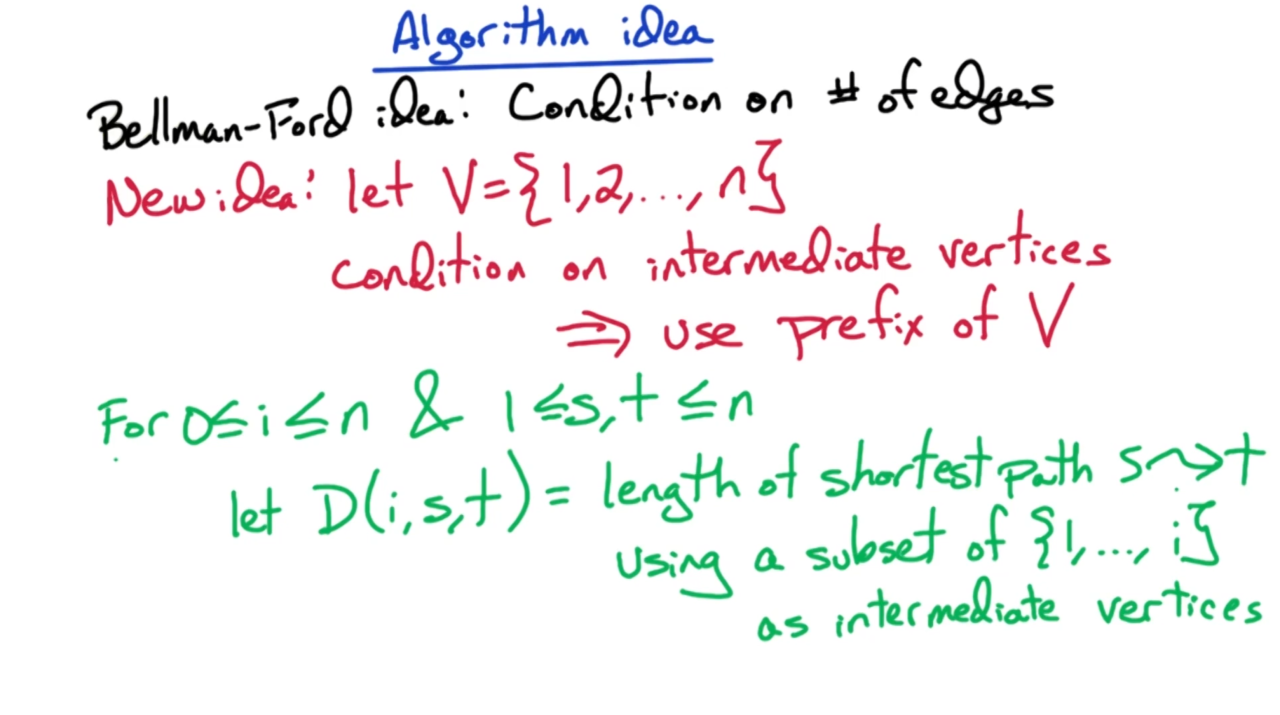 Algorithm idea
Bellman-Ford idea: Condition on # of edges
New idea: let V={1,2,...,n}
condition on intermediate vertices
⇒ use prefix of V
For 0≤i≤n & 1≤s,t≤n
let D(i,s,t) = length of shortest path s⇝t
using a subset of {1,...,i}
as intermediate vertices